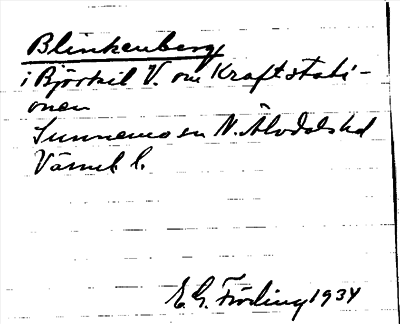 Blinkenberg
i Björkil V. om Kraftstati-
onen
Sunnemo sn N. Älvdals hd
Värml. l.
E. G. Fröding 1934